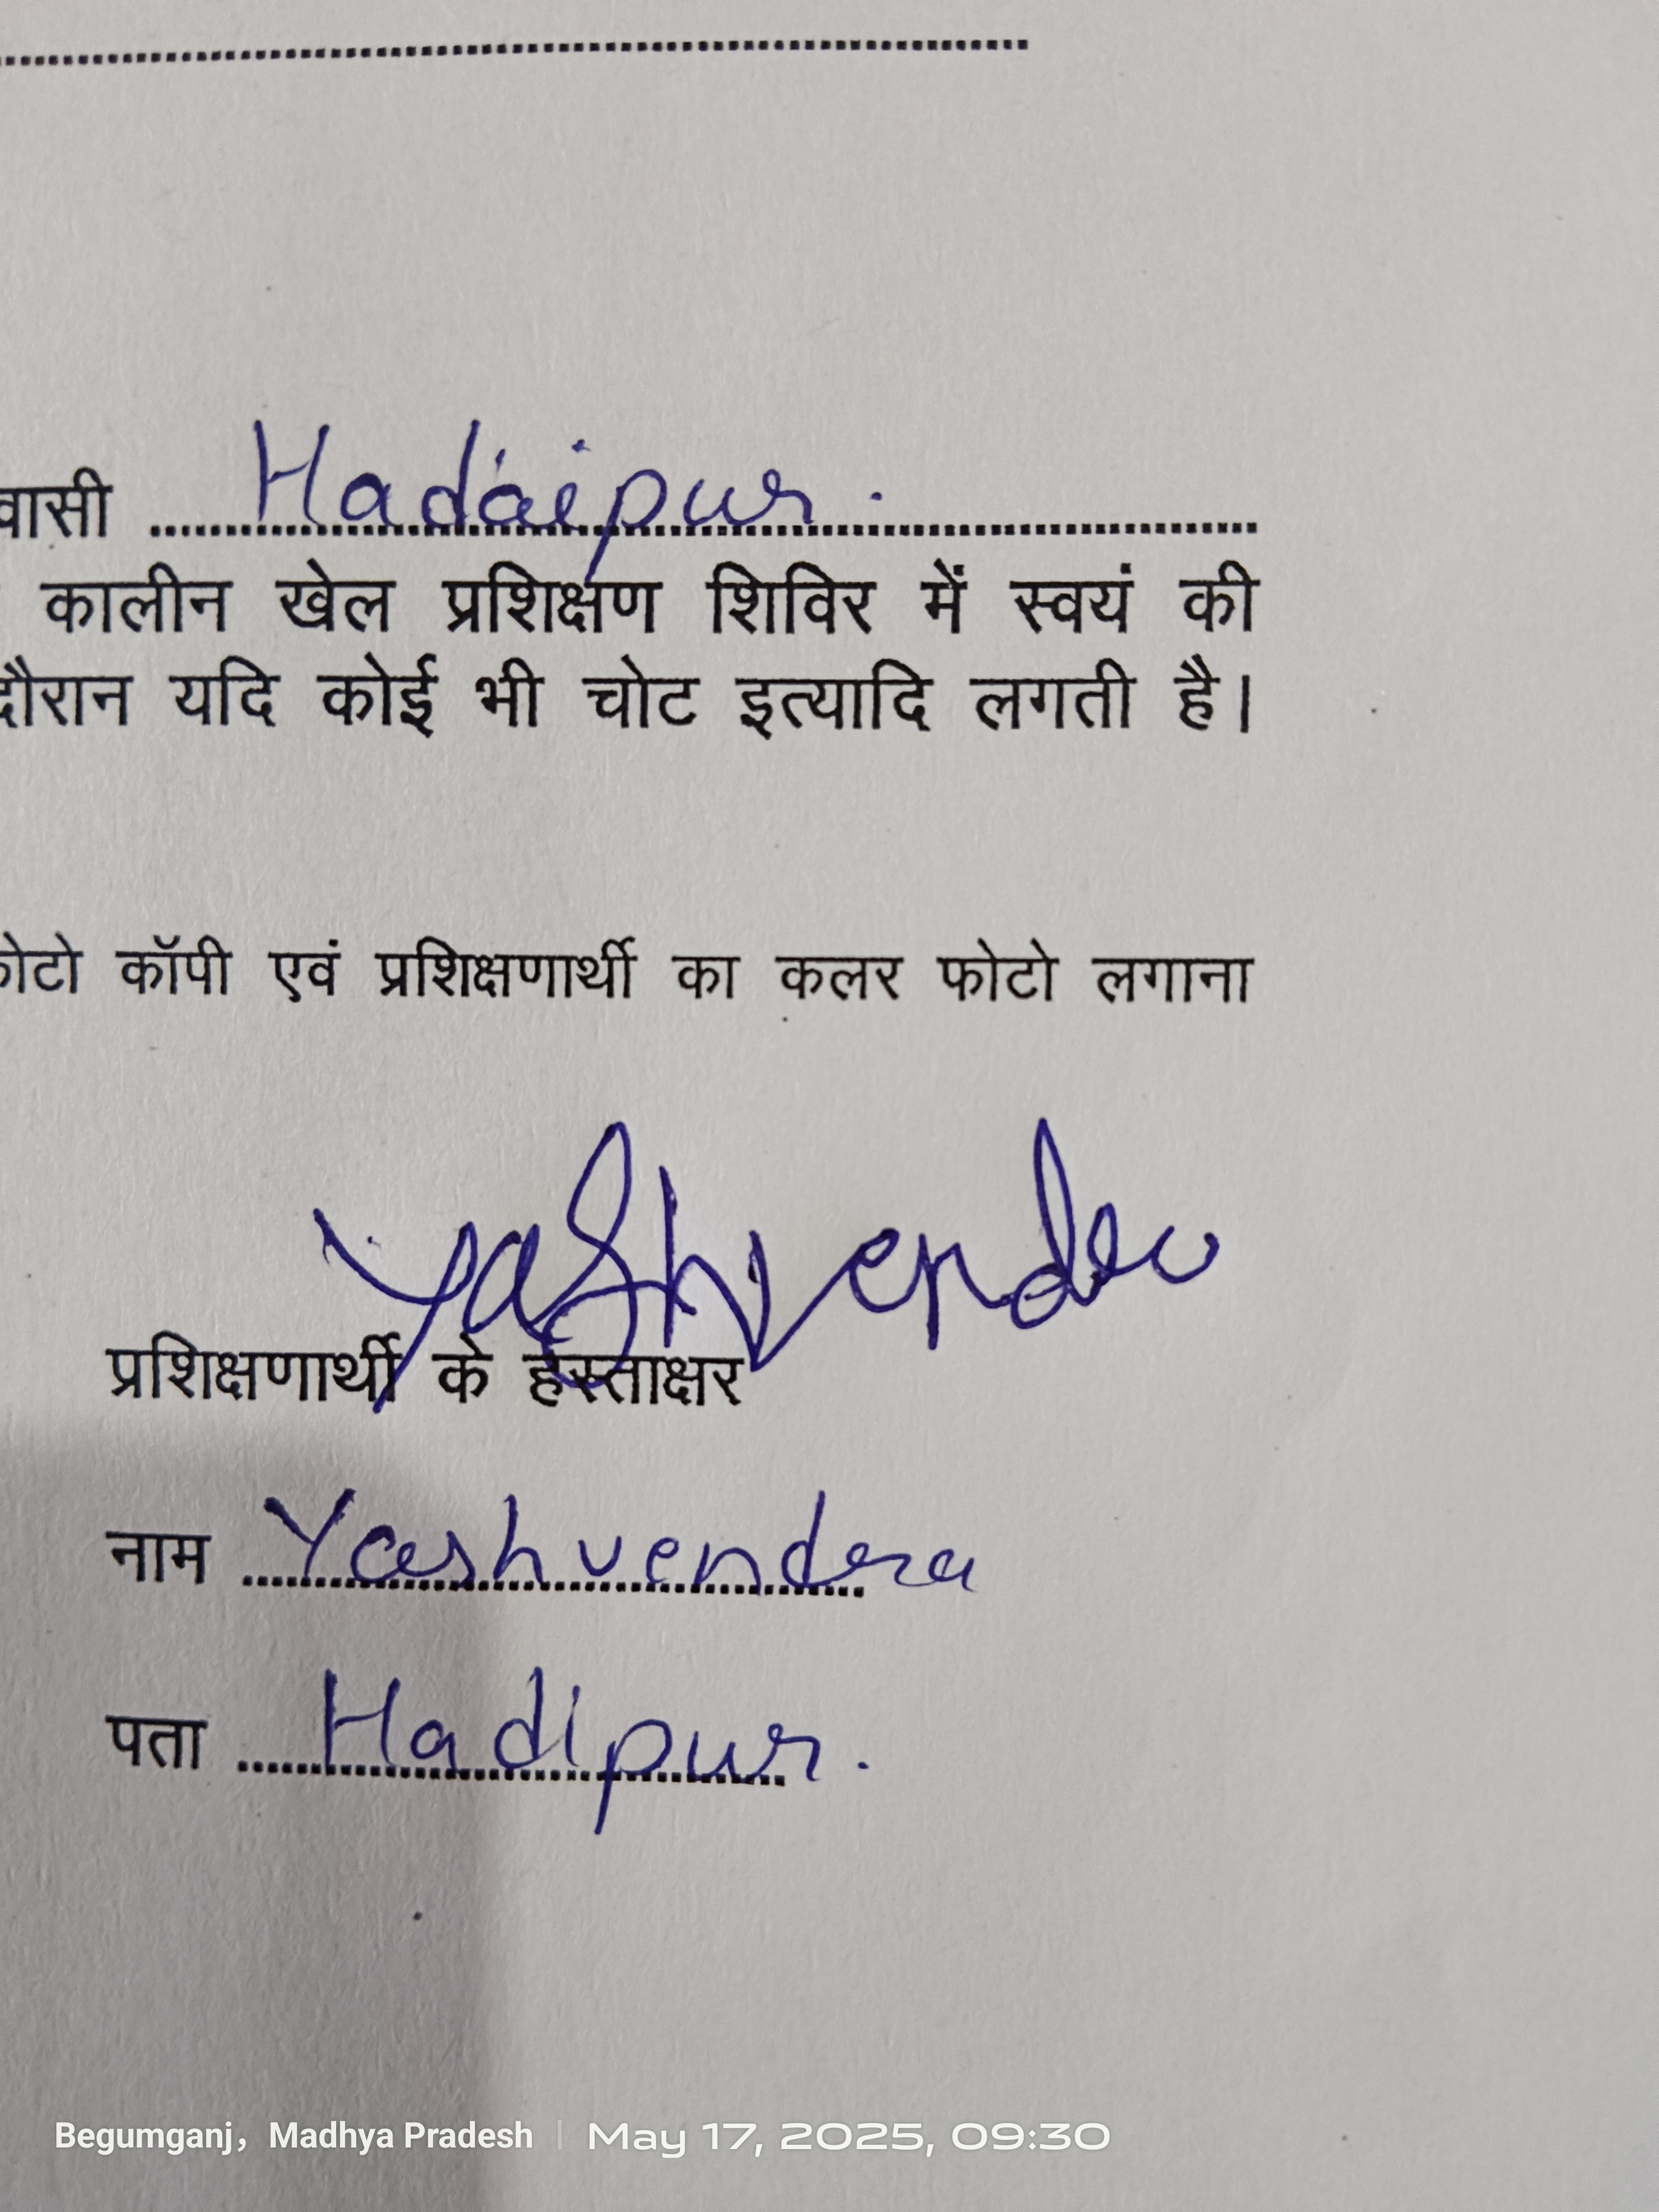 वासी Hadaipur.
कालीन खेल प्रशिक्षण शिविर में स्वयं की
दौरान यदि कोई भी चोट इत्यादि लगती है।
फोटो कॉपी एवं प्रशिक्षणार्थी का कलर फोटो लगाना
Yashvendra
प्रशिक्षणार्थी के हस्ताक्षर
नाम Yashvendra
पता Hadipur.
Begumganj, Madhya Pradesh | May 17, 2025, 09:30